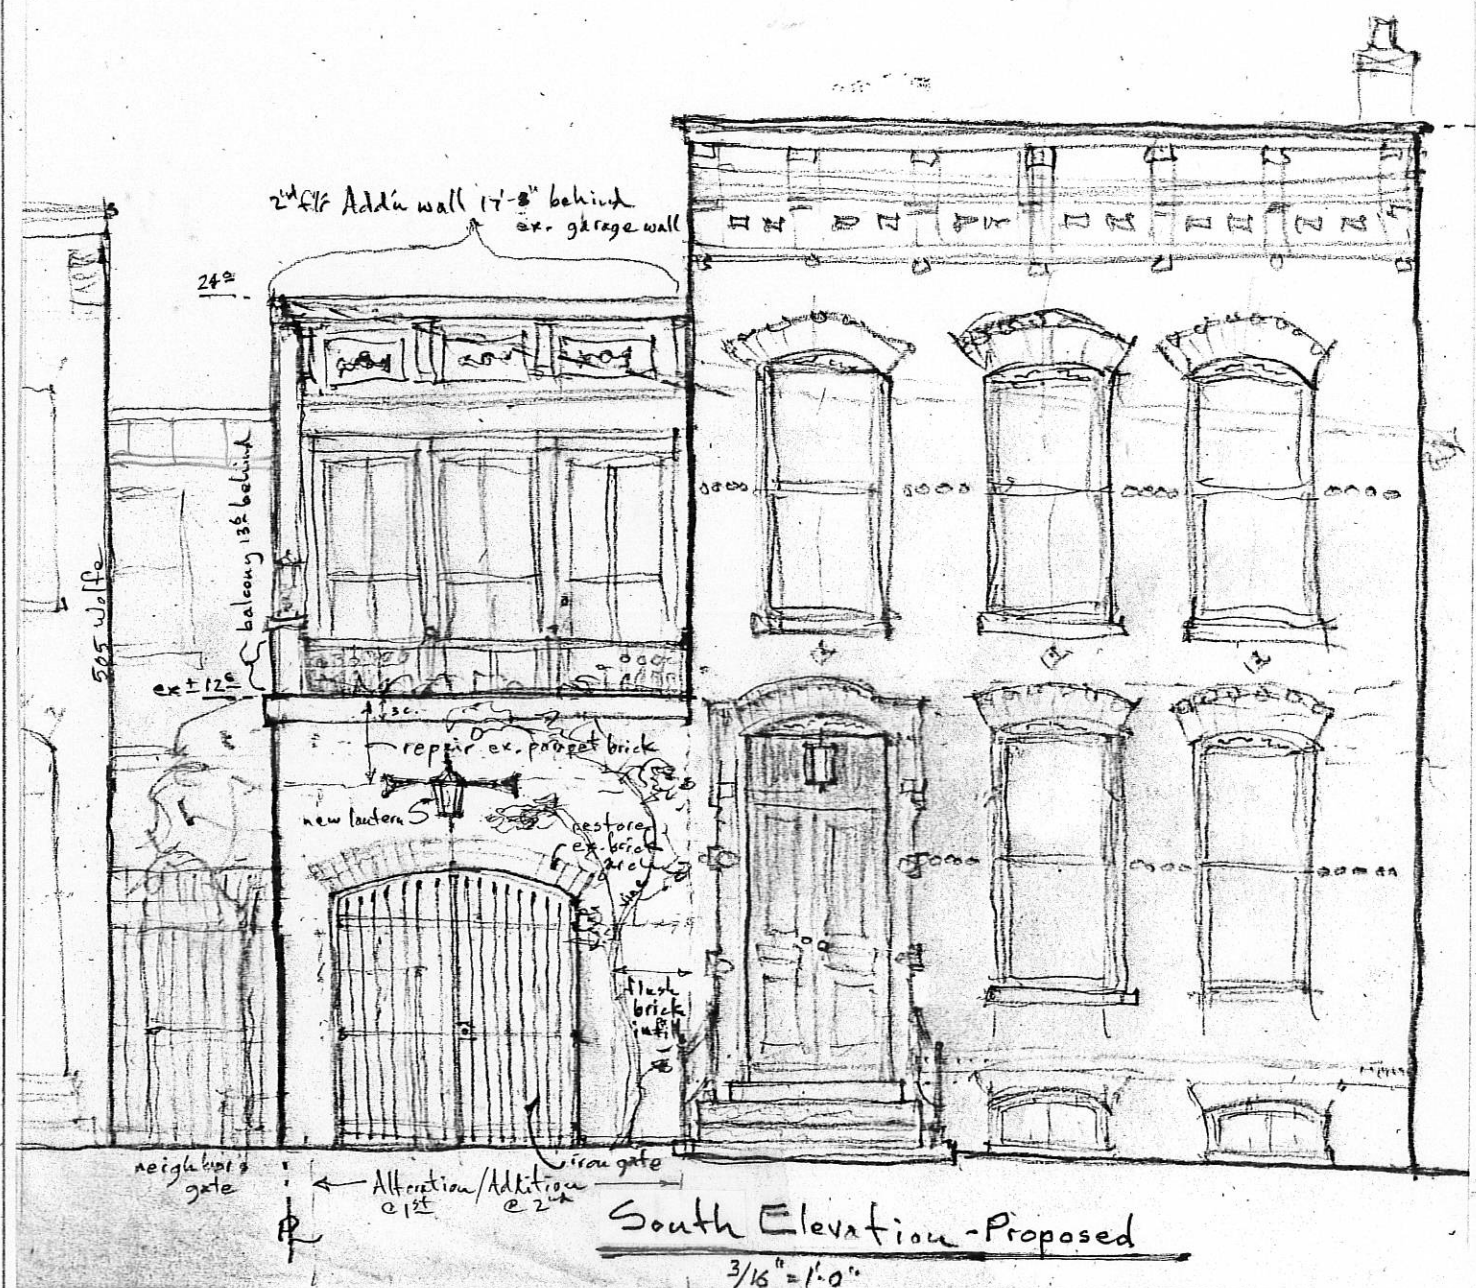 2nd flr Add'n wall 17'-8" behind
ex. garage wall
24⁰
balcony 13⁶ behind
505 Wolfe
ex ± 12⁶
3c.
repair ex. parapet brick
new lantern
restore
ex. brick
arch
vine
flush
brick
infill
neighbor's
gate
iron gate
Alteration/Addition
@ 1st @ 2nd
PL
South Elevation - Proposed
3/16" = 1'-0"